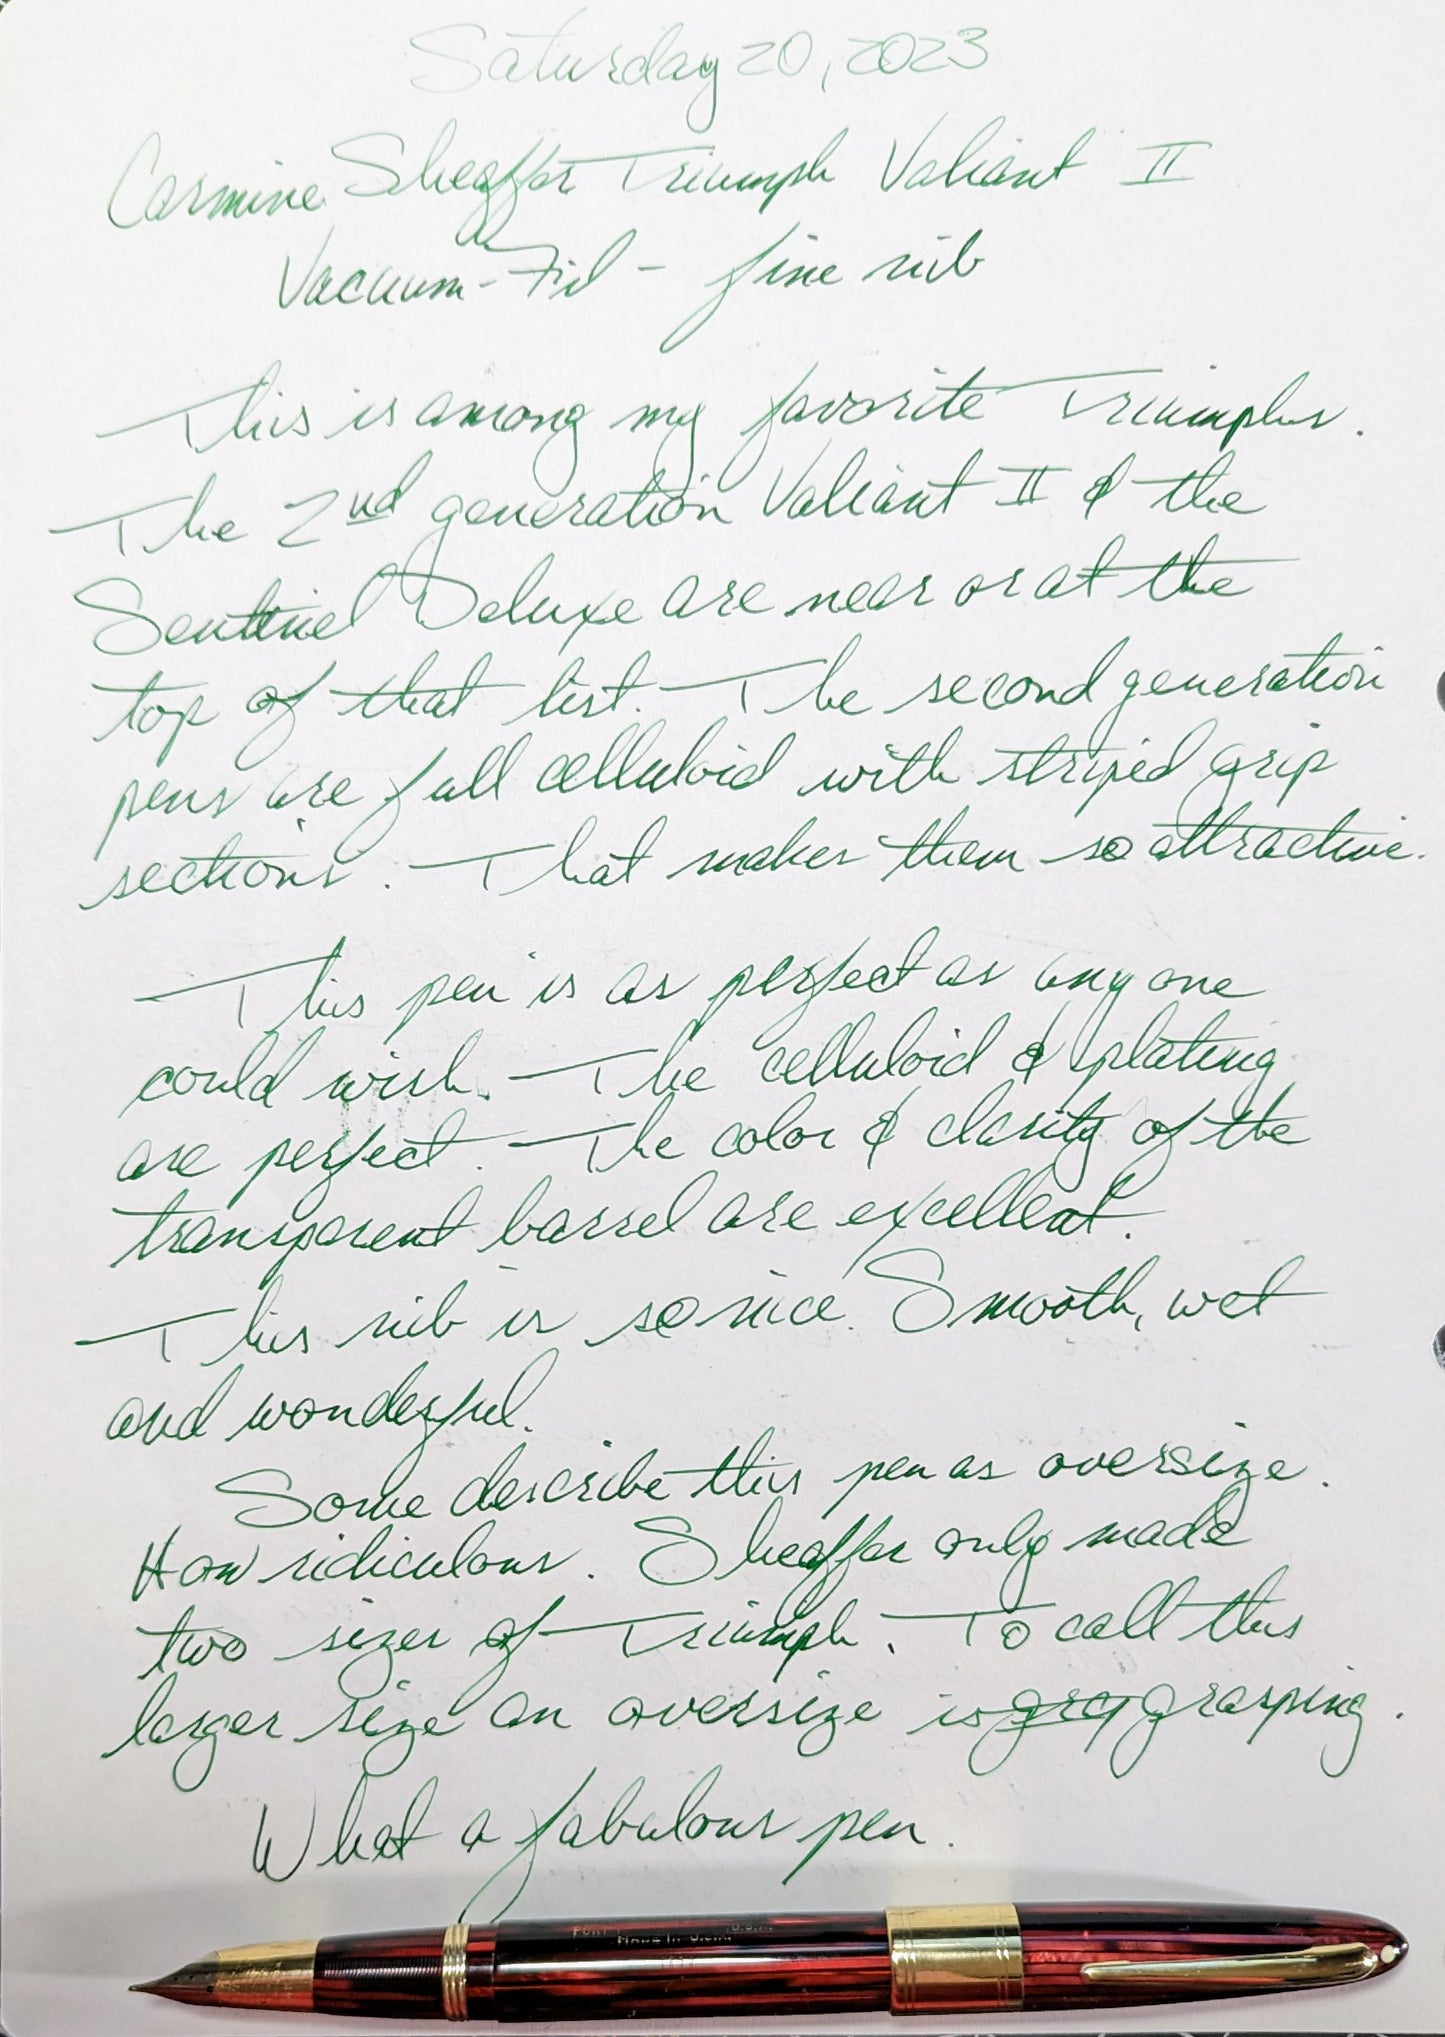 Saturday 20, 2023
Carmine Sheaffer Triumph Valiant II
Vacuum-Fil - fine nib
This is among my favorite Triumphs.
The 2nd generation Valiant II & the
Sentinel Deluxe are near or at the
top of that list. The second generation
pens are full celluloid with striped grip
sections. That makes them so attractive.
This pen is as perfect as any one
could wish. The celluloid & plating
are perfect. The color & clarity of the
transparent barrel are excellent.
This nib is so nice. Smooth, wet
and wonderful.
Some describe this pen as oversize.
How ridiculous. Sheaffer only made
two sizes of Triumph. To call this
larger size an oversize is grasping.
What a fabulous pen.
MADE IN U.S.A.